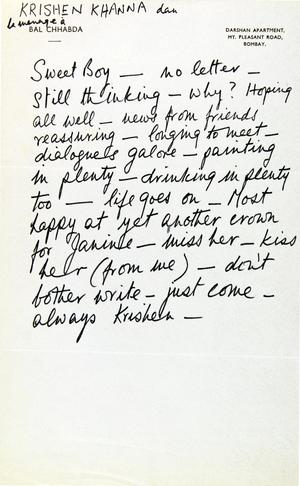 KRISHEN KHANNA dan
le menage à
BAL CHHABDA
DARSHAN APARTMENT,
MT. PLEASANT ROAD,
BOMBAY.
Sweet Boy — no letter –
still thinking – why? Hoping
all well – news from friends
reassuring – longing to meet –
dialogues galore – painting
in plenty – drinking in plenty
too — life goes on – Most
happy at yet another crown
for Janine – miss her – kiss
her (from me) – don't
bother write – just come –
always Krishen –